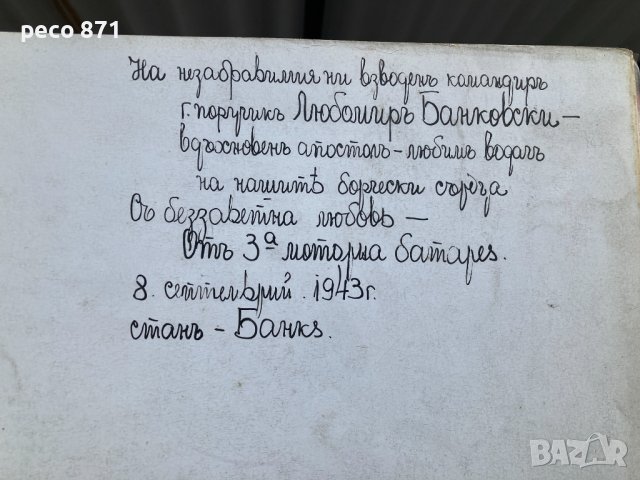 peco 871
На незабравимия ни взводенъ командиръ
г. поручикъ Любомиръ Банковски –
вдъхновенъ апостолъ – любимъ водачъ
на нашитѣ борчески сърдца
Съ беззаветна любовь –
Отъ 3ᵃ моторна батарея.
8. септемврий. 1943 г.
станъ – Банкя.
BAZAR